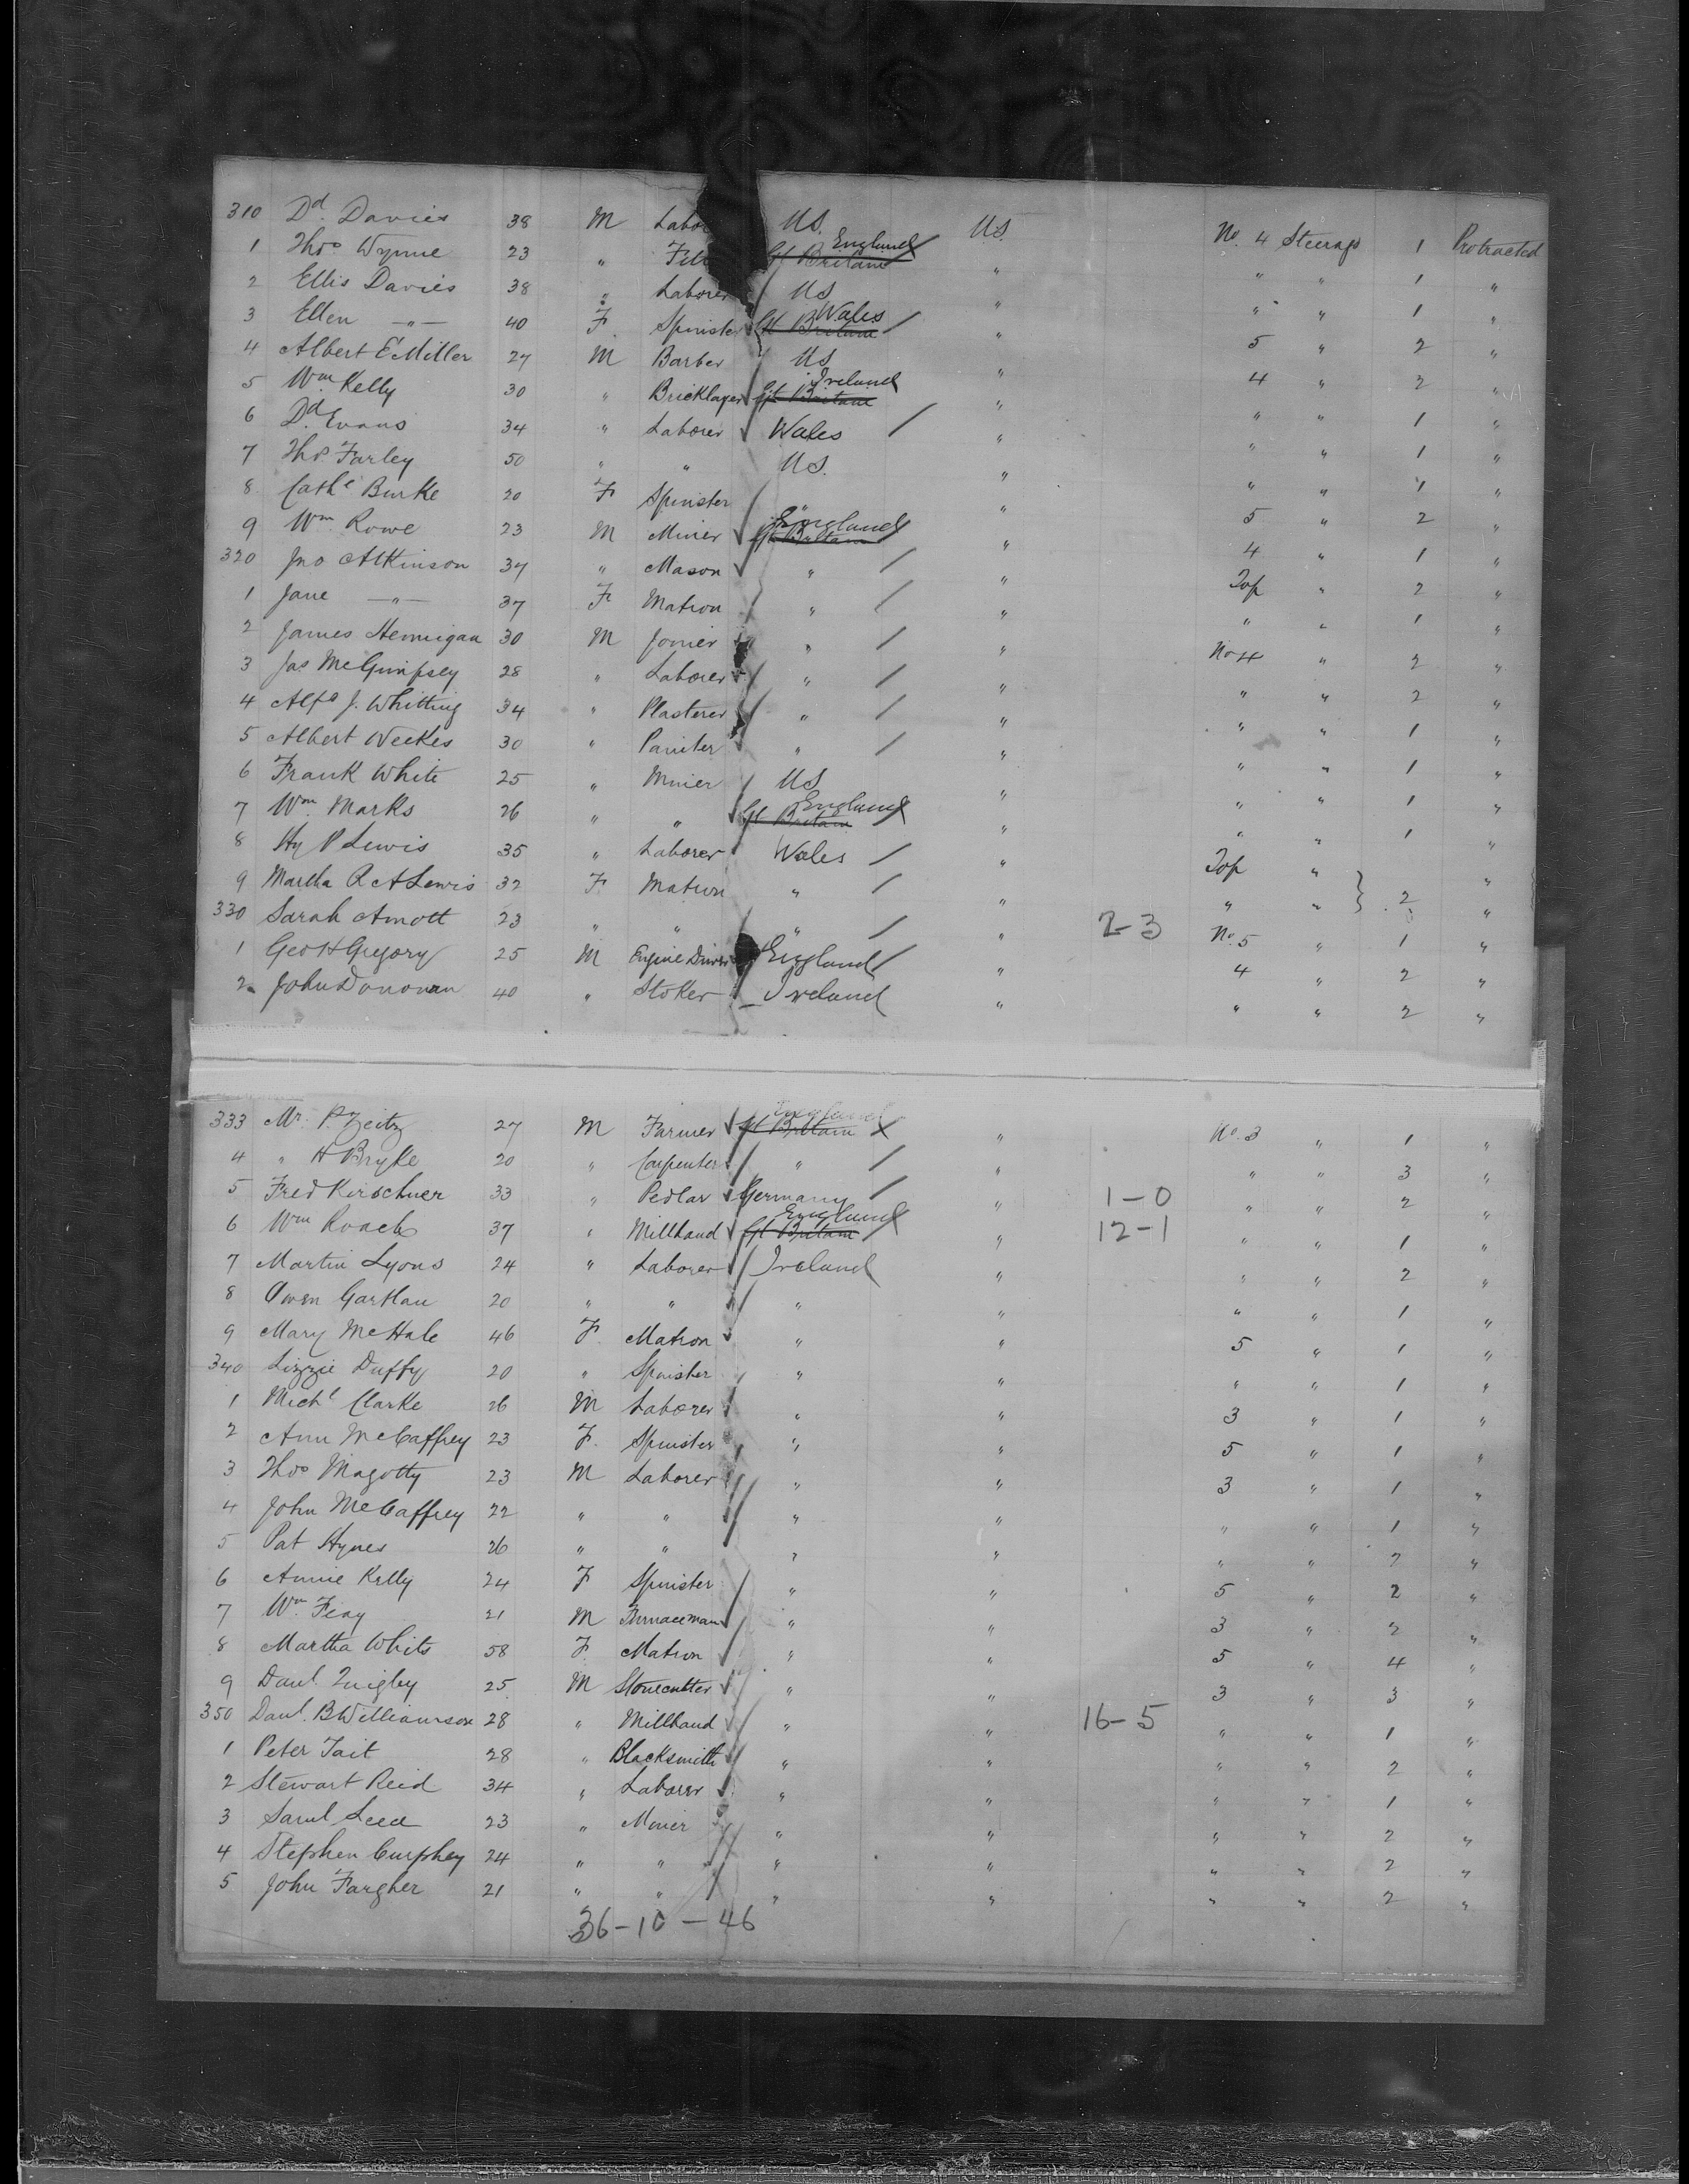 310 Dd. Davies 38 M Labo U.S. U.S. No. 4 Steerage 1 Protracted
1 Thos Wynne 23 " Fitt Gt Britain England " " " 1 "
2 Ellis Davies 38 " Laborer US " " " 1 "
3 Ellen —"— 40 F. Spinster Gt Britain Wales " 5 " 2 "
4 Albert E Miller 27 M Barber US " 4 " 2 "
5 Wm Kelly 30 " Bricklayer Gt Britain Ireland " " " 1 "
6 Dd. Evans 34 " Laborer Wales " " " 1 "
7 Thos. Farley 50 " " U.S. " " " 1 "
8 Cathe Burke 20 F Spinster " " 5 " 2 "
9 Wm Rowe 23 M Miner Gt Britain England " 4 " 1 "
320 Jno Atkinson 37 " Mason " " Top " 2 "
1 Jane —"— 37 F Matron " " " " 1 "
2 James Hennigan 30 M Joiner " " No 4 " 2 "
3 Jas McGimpsey 28 " Laborer " " " " 2 "
4 Alfd J. Whitting 34 " Plasterer " " " " 1 "
5 Albert Weekes 30 " Painter " " " " 1 "
6 Frank White 25 " Miner US " " " 1 "
7 Wm Marks 26 " " Gt Britain England " " " 1 "
8 Hy P Lewis 35 " Laborer Wales " Top "
9 Martha R A Lewis 32 F Matron " " " " 2 "
330 Sarah Arnott 23 " " " " 2-3 No. 5 " 1 "
1 Geo H Gregory 25 M Engine Driver England " 4 " 2 "
2 John Donovan 40 " Stoker Ireland " " " 2 "
333 Mr. P. Zeitz 27 M Farmer Gt Britain England " No. 3 " 1 "
4 " H Bryke 20 " Carpenter " " " " 3 "
5 Fred Kirschner 33 " Pedlar Germany " 1-0 " " 2 "
6 Wm Roach 37 " Millhand Gt Britain England " 12-1 " " 1 "
7 Martin Lyons 24 " Laborer Ireland " " " 2 "
8 Owen Gartlan 20 " " " " " " 1 "
9 Mary McHale 46 F. Matron " " 5 " 1 "
340 Lizzie Duffy 20 " Spinster " " " " 1 "
1 Michl Clarke 26 M Laborer " " 3 " 1 "
2 Ann McCaffrey 23 F. Spinster " " 5 " 1 "
3 Thos Magotty 23 M Laborer " " 3 " 1 "
4 John McCaffrey 22 " " " " " " 1 "
5 Pat Hynes 26 " " " " " " 2 "
6 Annie Kelly 24 F Spinster " " 5 " 2 "
7 Wm Feay 21 M Furnaceman " " 3 " 2 "
8 Martha White 58 F. Matron " " 5 " 4 "
9 Danl. Quigley 25 M Stonecutter " " 3 " 3 "
350 Danl. B Williamson 28 " Millhand " " 16-5 " " 1 "
1 Peter Tait 28 " Blacksmith " " " " 2 "
2 Stewart Reid 34 " Laborer " " " " 1 "
3 Saml Leed 23 " Miner " " " " 2 "
4 Stephen Curphey 24 " " " " " " 2 "
5 John Fargher 21 " " " " " " 2 "
36-10-46